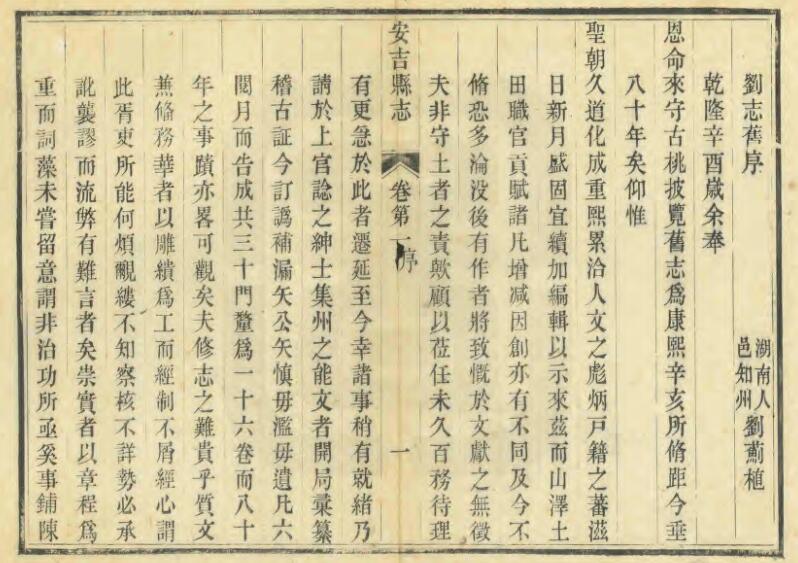 劉志舊序
湖南人
邑知州
劉薊植
乾隆辛酉歲余奉
恩命來守古桃披覽舊志爲康熙辛亥所脩距今垂
八十年矣仰惟
聖朝久道化成重熙累洽人文之彪炳戸籍之蕃滋
日新月盛固宜續加編輯以示來茲而山澤土
田職官貢賦諸凡增減因創亦有不同及今不
脩恐多淪没後有作者將致慨於文獻之無徵
夫非守土者之責歟顧以莅任未久百務待理
安吉縣志 卷第一 序 一
有更急於此者遷延至今幸諸事稍有就緒乃
請於上官諗之紳士集州之能文者開局彙纂
稽古証今訂譌補漏矢公矢慎毋濫毋遺凡六
閱月而告成共三十門釐爲一十六卷而八十
年之事蹟亦畧可觀矣夫修志之難貴乎質文
兼俻務華者以雕繢爲工而經制不屑經心謂
此胥吏所能何煩覼縷不知察核不詳勢必承
訛襲謬而流弊有難言者矣崇實者以章程爲
重而詞藻未嘗留意謂非治功所亟奚事鋪陳